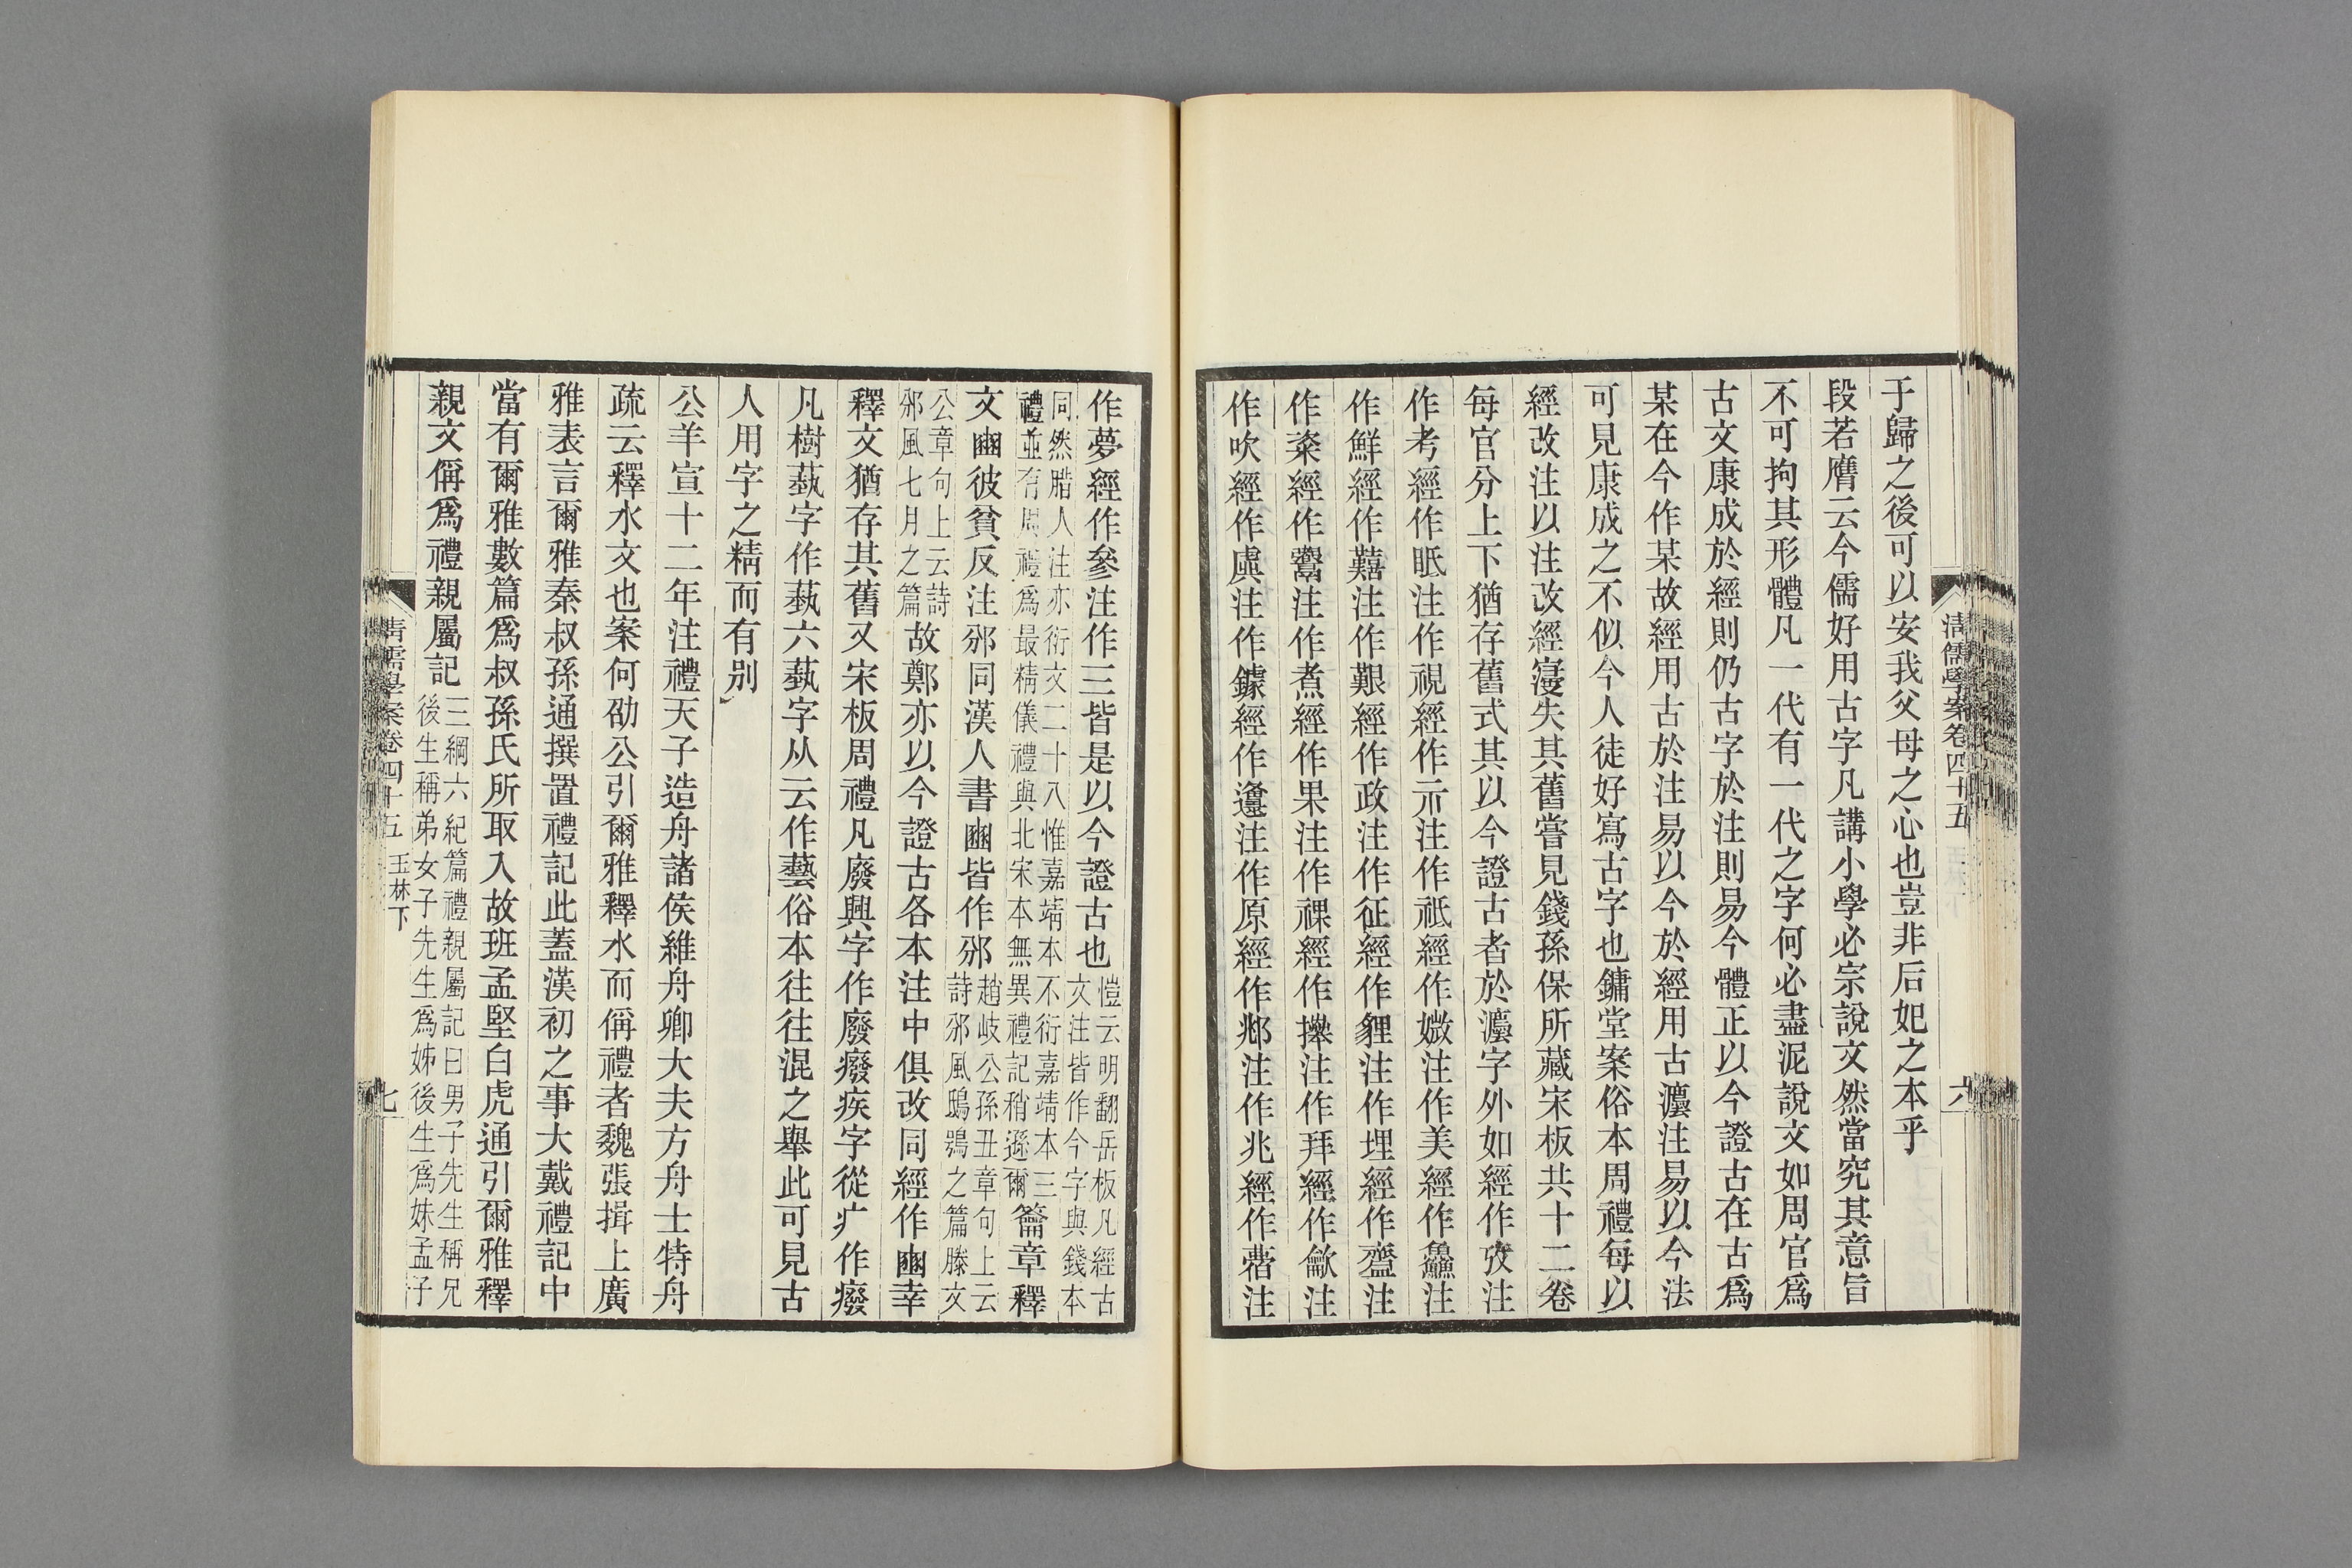 清儒學案卷四十五
六
于歸之後可以安我父母之心也豈非后妃之本乎
段若膺云今儒好用古字凡講小學必宗說文然當究其意旨
不可拘其形體凡一代有一代之字何必盡泥說文如周官爲
古文康成於經則仍古字於注則易今體正以今證古在古爲
某在今作某故經用古於注易以今於經用古灋注易以今法
可見康成之不似今人徒好寫古字也鏞堂案俗本周禮每以
經改注以注改經寖失其舊嘗見錢孫保所藏宋板共十二卷
每官分上下猶存舊式其以今證古者於灋字外如經作攷注
作考經作眡注作視經作示注作祗經作媺注作美經作鱻注
作鮮經作囏注作艱經作政注作征經作貍注作埋經作齍注
作粢經作鬻注作煮經作果注作祼經作𢷎注作拜經作龡注
作吹經作虡注作鐻經作邍注作原經作𠧞注作兆經作蓍注
作夢經作參注作三皆是以今證古也愷云明翻岳板凡經古
文注皆作今字與錢本
同然腊人注亦衍文二十八惟嘉靖本不衍嘉靖本三
禮並有周禮爲最精儀禮與北宋本無異禮記稍遜爾籥章釋
文豳彼貧反注邠同漢人書豳皆作邠趙岐公孫丑章句上云
詩邠風鴟鴞之篇滕文
公章句上云詩
邠風七月之篇故鄭亦以今證古各本注中俱改同經作豳幸
釋文猶存其舊又宋板周禮凡廢興字作廢癈疾字從疒作癈
凡樹蓺字作蓺六蓺字从云作藝俗本往往混之舉此可見古
人用字之精而有別
公羊宣十二年注禮天子造舟諸侯維舟卿大夫方舟士特舟
疏云釋水文也案何劭公引爾雅釋水而偁禮者魏張揖上廣
雅表言爾雅秦叔孫通撰置禮記此蓋漢初之事大戴禮記中
當有爾雅數篇爲叔孫氏所取入故班孟堅白虎通引爾雅釋
親文偁爲禮親屬記三綱六紀篇禮親屬記曰男子先生稱兄
後生稱弟女子先生爲姊後生爲妹孟子
清儒學案卷四十五 玉林下
七